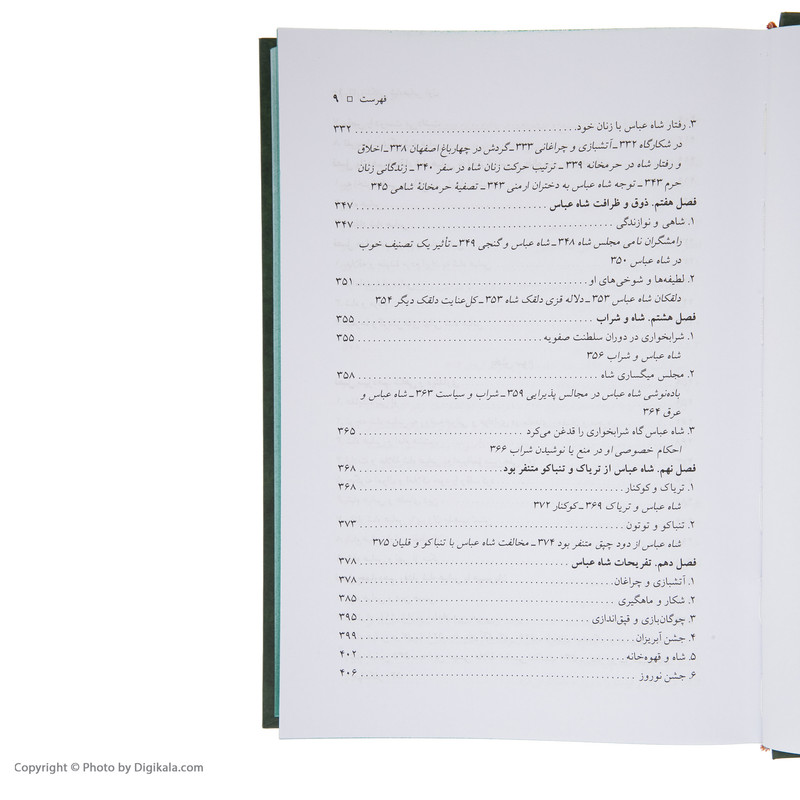 فهرست □ ۹
۳. رفتار شاه عباس با زنان خود ........ ۳۳۲
در شکارگاه ۳۳۲ ـ آتشبازی و چراغانی ۳۳۳ ـ گردش در چهارباغ اصفهان ۳۳۸ ـ اخلاق
و رفتار شاه در حرمخانه ۳۳۹ ـ ترتیب حرکت زنان شاه در سفر ۳۴۰ ـ زندگانی زنان
حرم ۳۴۳ ـ توجه شاه عباس به دختران ارمنی ۳۴۳ ـ تصفیهٔ حرمخانهٔ شاهی ۳۴۵
فصل هفتم. ذوق و ظرافت شاه عباس ........ ۳۴۷
۱. شاهی و نوازندگی ........ ۳۴۷
رامشگران نامی مجلس شاه ۳۴۸ ـ شاه عباس و گنجی ۳۴۹ ـ تأثیر یک تصنیف خوب
در شاه عباس ۳۵۰
۲. لطیفه‌ها و شوخی‌های او ........ ۳۵۱
دلقکان شاه عباس ۳۵۳ ـ دلاله قزی دلقک شاه ۳۵۳ ـ کل‌عنایت دلقک دیگر ۳۵۴
فصل هشتم. شاه و شراب ........ ۳۵۵
۱. شرابخواری در دوران سلطنت صفویه ........ ۳۵۵
شاه عباس و شراب ۳۵۶
۲. مجلس میگساری شاه ........ ۳۵۸
باده‌نوشی شاه عباس در مجالس پذیرایی ۳۵۹ ـ شراب و سیاست ۳۶۳ ـ شاه عباس و
عرق ۳۶۴
۳. شاه عباس گاه شرابخواری را قدغن می‌کرد ........ ۳۶۵
احکام خصوصی او در منع یا نوشیدن شراب ۳۶۶
فصل نهم. شاه عباس از تریاک و تنباکو متنفر بود ........ ۳۶۸
۱. تریاک و کوکنار ........ ۳۶۸
شاه عباس و تریاک ۳۶۹ ـ کوکنار ۳۷۲
۲. تنباکو و توتون ........ ۳۷۳
شاه عباس از دود چپق متنفر بود ۳۷۴ ـ مخالفت شاه عباس با تنباکو و قلیان ۳۷۵
فصل دهم. تفریحات شاه عباس ........ ۳۷۸
۱. آتشبازی و چراغان ........ ۳۷۸
۲. شکار و ماهگیری ........ ۳۸۵
۳. چوگان‌بازی و قپق‌اندازی ........ ۳۹۵
۴. جشن آبریزان ........ ۳۹۹
۵. شاه و قهوه‌خانه ........ ۴۰۲
۶. جشن نوروز ........ ۴۰۶
Copyright © Photo by Digikala.com